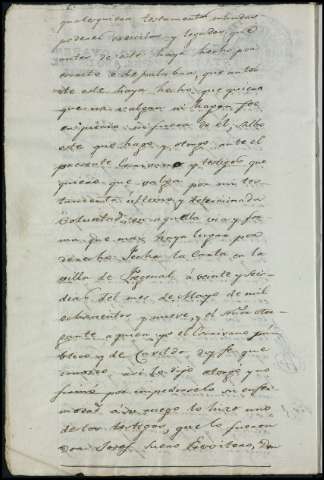 qualesquiera testamentos mandas
poderes Codicilos y legados que
antes de este haya hecho por
escrito o de palabra, que antes
de este haya hecho, que quiero
que no valgan ni hagan fee
en juicio ni fuera de el, salvo
este que hago y otorgo ante el
presente Escrivano y testigos que
quiero que valga por mi tes-
tamento ultima y determinada
Voluntad en aquella via y for-
ma que mas haya lugar por
derecho. Fecha la Carta en la
villa de Fregenal á veinte y seis
dias del mes de Mayo de mil
ochocientos y nueve, y el Señor otor-
gante a quien yo el Escrivano pu-
blico y de Cavildo doy fe que
conozco, asi lo dijo otorgo y no
firmó por impedirselo su enfer-
medad á su ruego lo hizo uno
de los testigos, que lo fueron
Don Josef